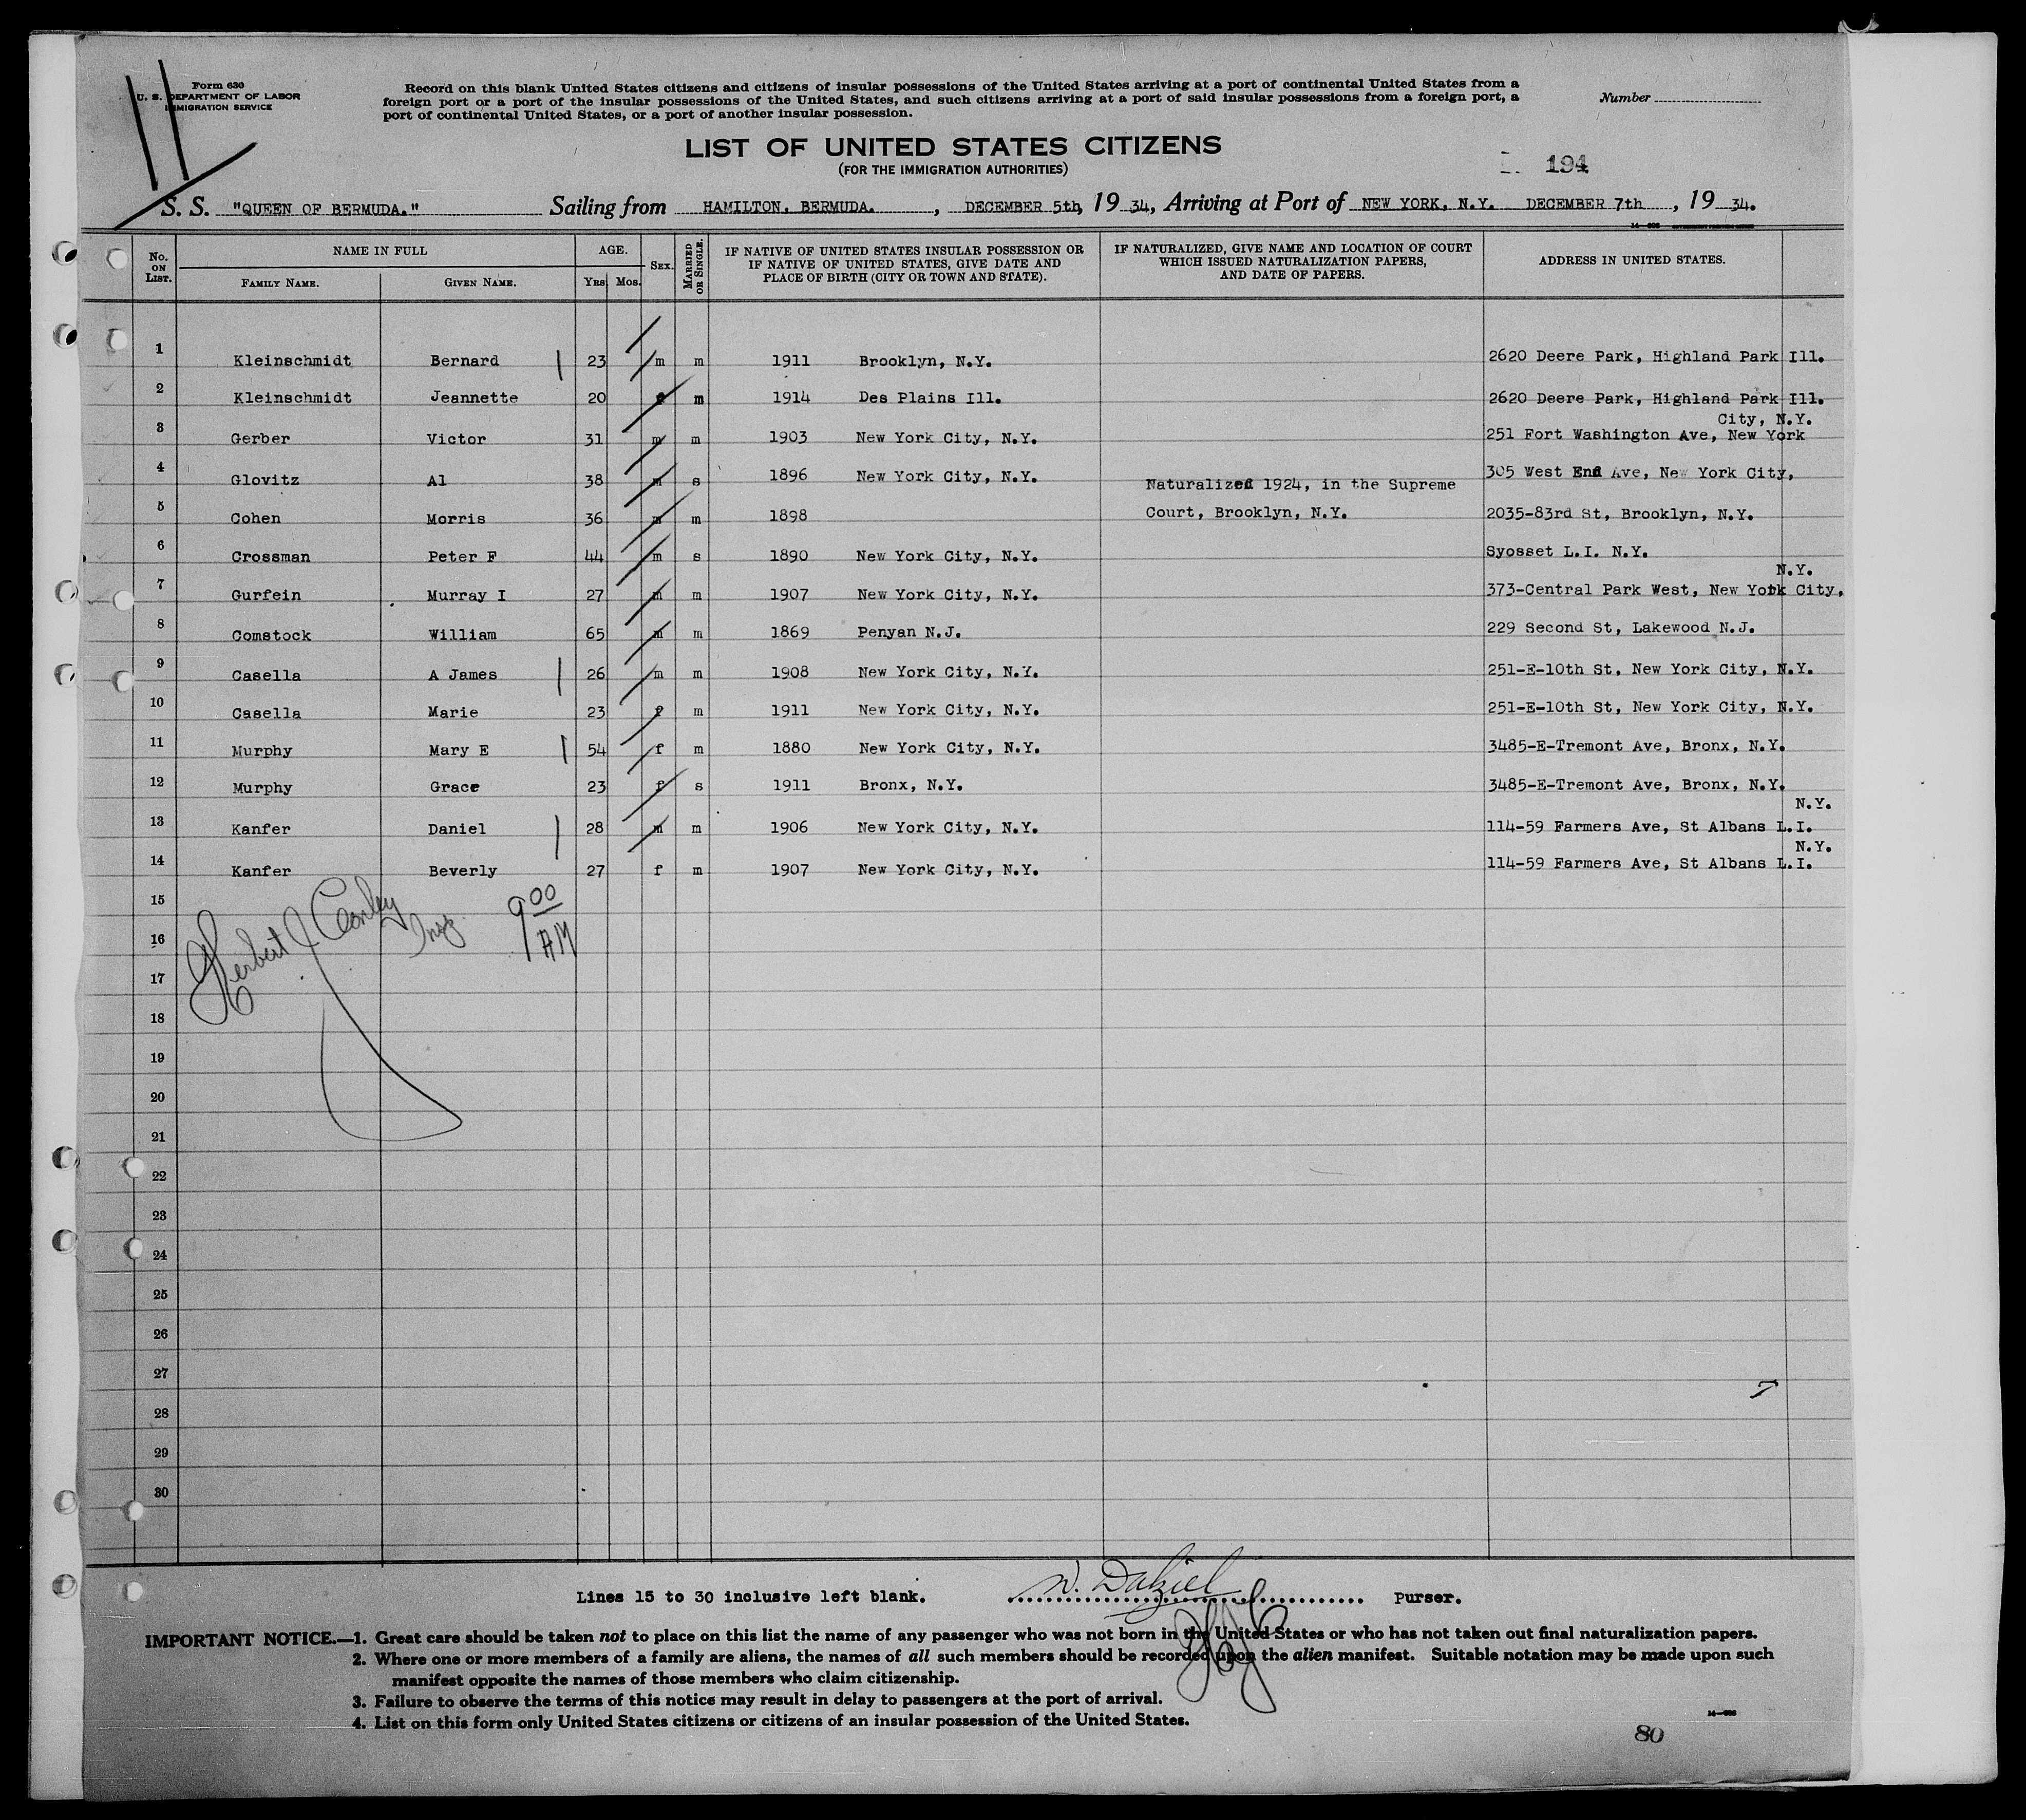 Form 630
U. S. DEPARTMENT OF LABOR
IMMIGRATION SERVICE
Record on this blank United States citizens and citizens of insular possessions of the United States arriving at a port of continental United States from a
foreign port or a port of the insular possessions of the United States, and such citizens arriving at a port of said insular possessions from a foreign port, a
port of continental United States, or a port of another insular possession.
Number
LIST OF UNITED STATES CITIZENS
(FOR THE IMMIGRATION AUTHORITIES)
194
S. S. "QUEEN OF BERMUDA." Sailing from HAMILTON, BERMUDA. , DECEMBER 5th, 19 34, Arriving at Port of NEW YORK, N.Y. DECEMBER 7th , 19 34.
No. ON LIST. NAME IN FULL AGE. SEX. MARRIED OR SINGLE. IF NATIVE OF UNITED STATES INSULAR POSSESSION OR IF NATIVE OF UNITED STATES, GIVE DATE AND PLACE OF BIRTH (CITY OR TOWN AND STATE). IF NATURALIZED, GIVE NAME AND LOCATION OF COURT WHICH ISSUED NATURALIZATION PAPERS, AND DATE OF PAPERS. ADDRESS IN UNITED STATES.
FAMILY NAME. GIVEN NAME. YRS. MOS.
1 Kleinschmidt Bernard 23 m m 1911 Brooklyn, N.Y. 2620 Deere Park, Highland Park Ill.
2 Kleinschmidt Jeannette 20 f m 1914 Des Plains Ill. 2620 Deere Park, Highland Park Ill.
City, N.Y.
3 Gerber Victor 31 m m 1903 New York City, N.Y. 251 Fort Washington Ave, New York
4 Glovitz Al 38 m s 1896 New York City, N.Y. 305 West End Ave, New York City,
Naturalized 1924, in the Supreme
5 Cohen Morris 36 m m 1898 Court, Brooklyn, N.Y. 2035-83rd St, Brooklyn, N.Y.
6 Crossman Peter F 44 m s 1890 New York City, N.Y. Syosset L.I. N.Y.
N.Y.
7 Gurfein Murray I 27 m m 1907 New York City, N.Y. 373-Central Park West, New York City,
8 Comstock William 65 m m 1869 Penyan N.J. 229 Second St, Lakewood N.J.
9 Casella A James 26 m m 1908 New York City, N.Y. 251-E-10th St, New York City, N.Y.
10 Casella Marie 23 f m 1911 New York City, N.Y. 251-E-10th St, New York City, N.Y.
11 Murphy Mary E 54 f m 1880 New York City, N.Y. 3485-E-Tremont Ave, Bronx, N.Y.
12 Murphy Grace 23 f s 1911 Bronx, N.Y. 3485-E-Tremont Ave, Bronx, N.Y.
N.Y.
13 Kanfer Daniel 28 m m 1906 New York City, N.Y. 114-59 Farmers Ave, St Albans L.I.
N.Y.
14 Kanfer Beverly 27 f m 1907 New York City, N.Y. 114-59 Farmers Ave, St Albans L.I.
15
Herbert J Conley Insp. 9 00 AM
16
17
18
19
20
21
22
23
24
25
26
27
28
29
30
Lines 15 to 30 inclusive left blank. W. Dalziel Purser.
IMPORTANT NOTICE.—1. Great care should be taken not to place on this list the name of any passenger who was not born in the United States or who has not taken out final naturalization papers.
2. Where one or more members of a family are aliens, the names of all such members should be recorded upon the alien manifest. Suitable notation may be made upon such
manifest opposite the names of those members who claim citizenship.
3. Failure to observe the terms of this notice may result in delay to passengers at the port of arrival.
4. List on this form only United States citizens or citizens of an insular possession of the United States.
80